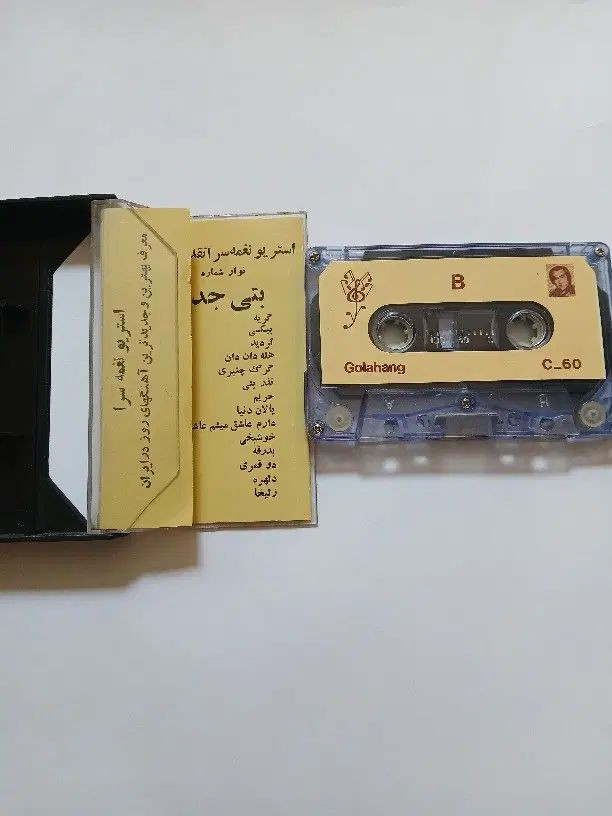 استریو نغمه سرا
معرف بهترین و جدیدترین آهنگهای روز در ایران
استریو نغمه سرا تقد
نوار شماره
بتی جد
گریه
بیکسی
تردید
هله دان دان
گرگ چنبری
نقد بتی
حریم
پالان دنیا
دارم عاشق میشم عاش
خوشبختی
بدرقه
دو قمری
دلهره
زلیخا
B
Golahang
C_60